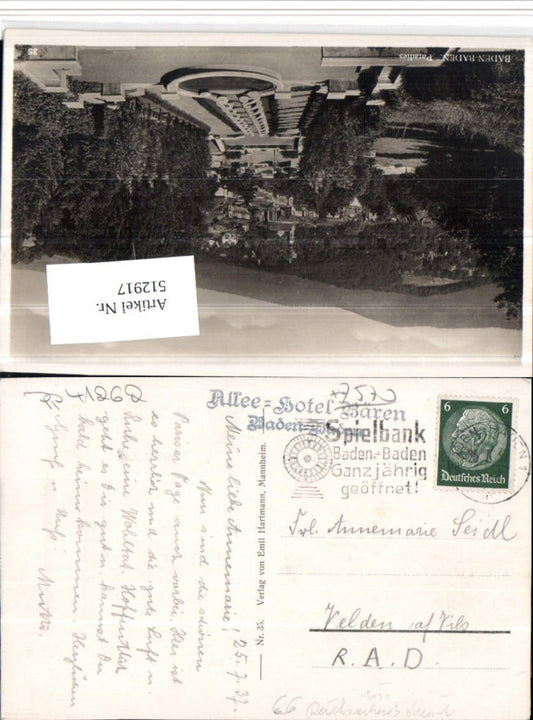 BADEN-BADEN. Paradies
35
Artikel Nr.
512917
Allee-Hotel-Bären
Baden-Baden
Spielbank
Baden-Baden
Ganzjährig
geöffnet!
6 6
Deutsches Reich
Nr. 35. Verlag von Emil Hartmann, Mannheim.
25.7.37.
Meine liebe Annemarie!
Nun sind die schönen
Pariser Tage auch vorbei. Hier ist
es herrlich und die gute Luft u.
Ruhe eine Wohltat. Hoffentlich
geht es Dir gut u. kannst Du
bald heimkommen. Herzlichen
Gruß u. Kuß! Mutti.
Frl. Annemarie Seidl
Velden a/Vils
R. A. D.
66